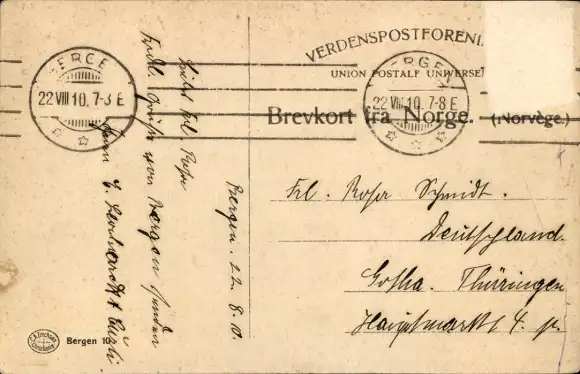 VERDENSPOSTFORENI
UNION POSTALE UNIVERSE
Brevkort fra Norge. (Norvège.)
BERGEN
22 VIII 10. 7-8 E
BERGEN
22 VIII 10. 7-8 E
Bergen. 22. 8. 10.
Frl. Rosa
Frdl. Grüße von Bergen senden
Frl. Rosa Schmidt.
Deutschland.
Gotha. Thüringen
Hauptmarkt 4.
Bergen 10